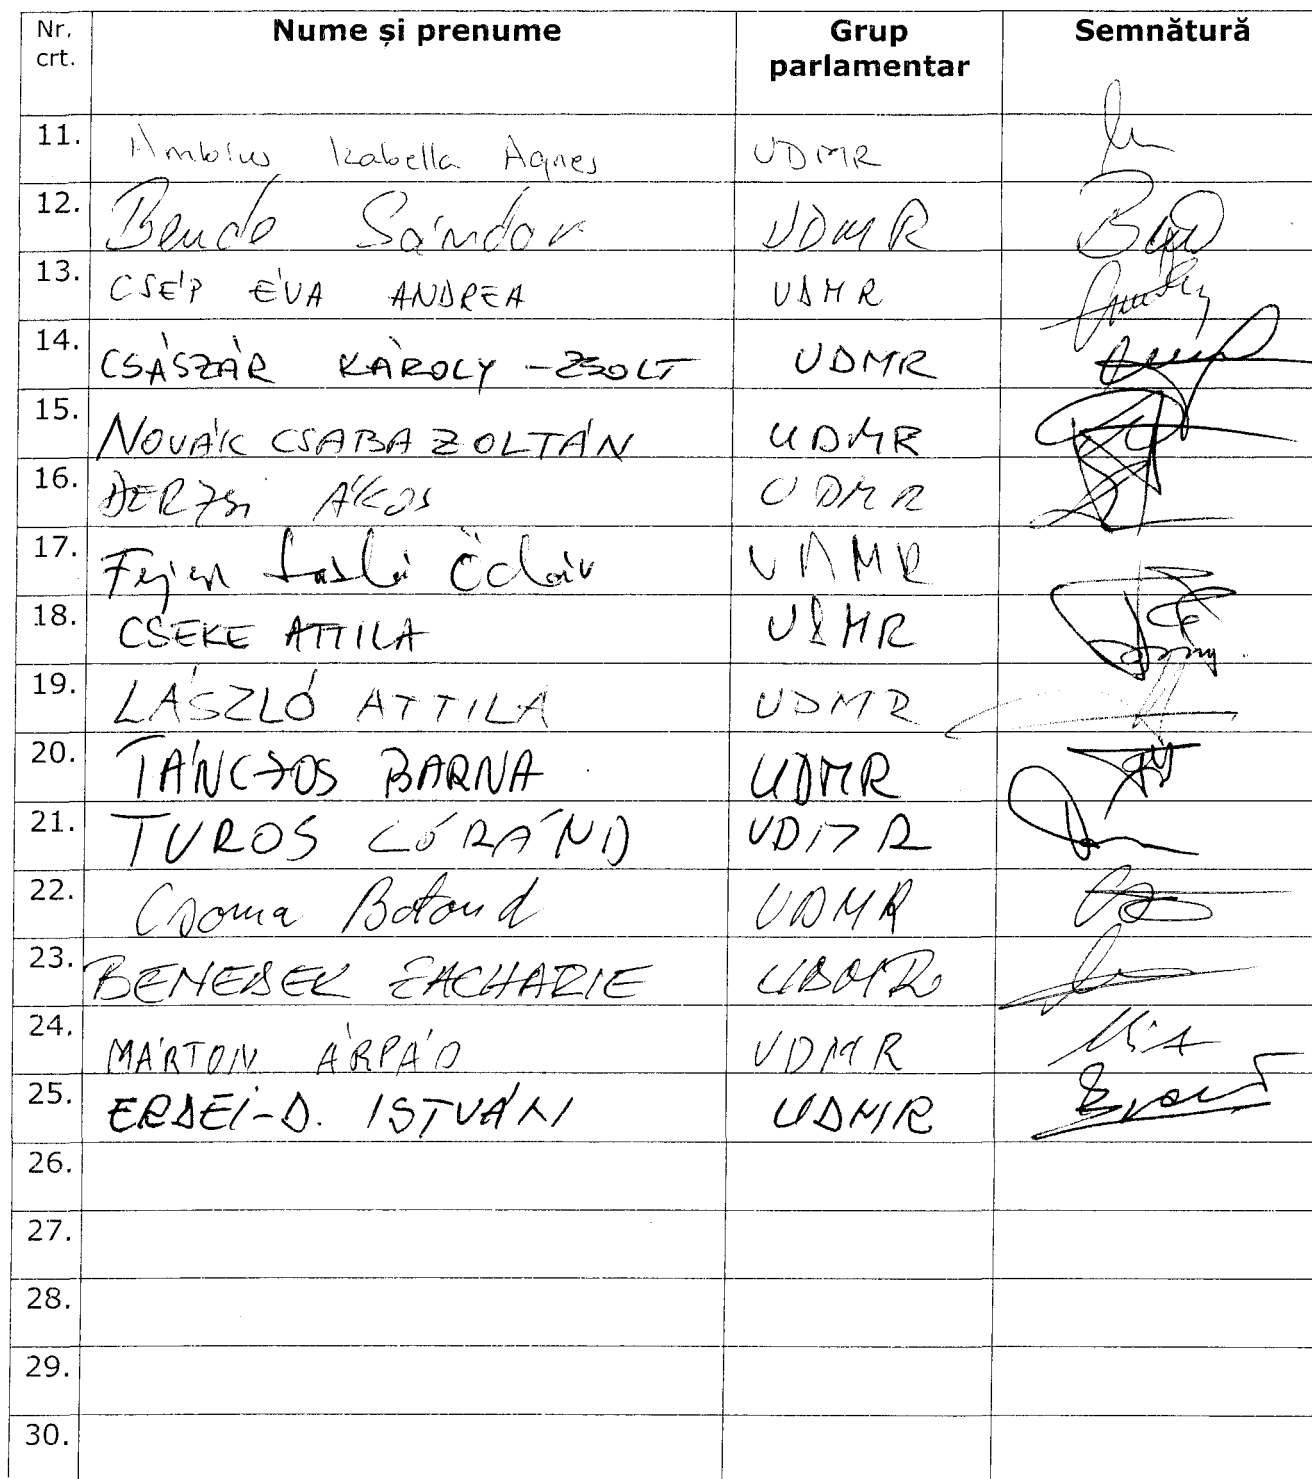 Nr. crt. Nume și prenume Grup parlamentar Semnătură
11. Ambrus Izabella Agnes UDMR
12. Bende Sándor UDMR
13. CSÉP ÉVA ANDREA UDMR
14. CSÁSZÁR KÁROLY-ZSOLT UDMR
15. NOVÁK CSABA ZOLTÁN UDMR
16. DERZSI ÁKOS UDMR
17. Fejér László Ödön UDMR
18. CSEKE ATTILA UDMR
19. LÁSZLÓ ATTILA UDMR
20. TÁNCZOS BARNA UDMR
21. TUROS LÓRÁND UDMR
22. Csoma Botond UDMR
23. BENEDEK ZACHARIE UDMR
24. MÁRTON ÁRPÁD UDMR
25. ERDEI-D. ISTVÁN UDMR
26.
27.
28.
29.
30.